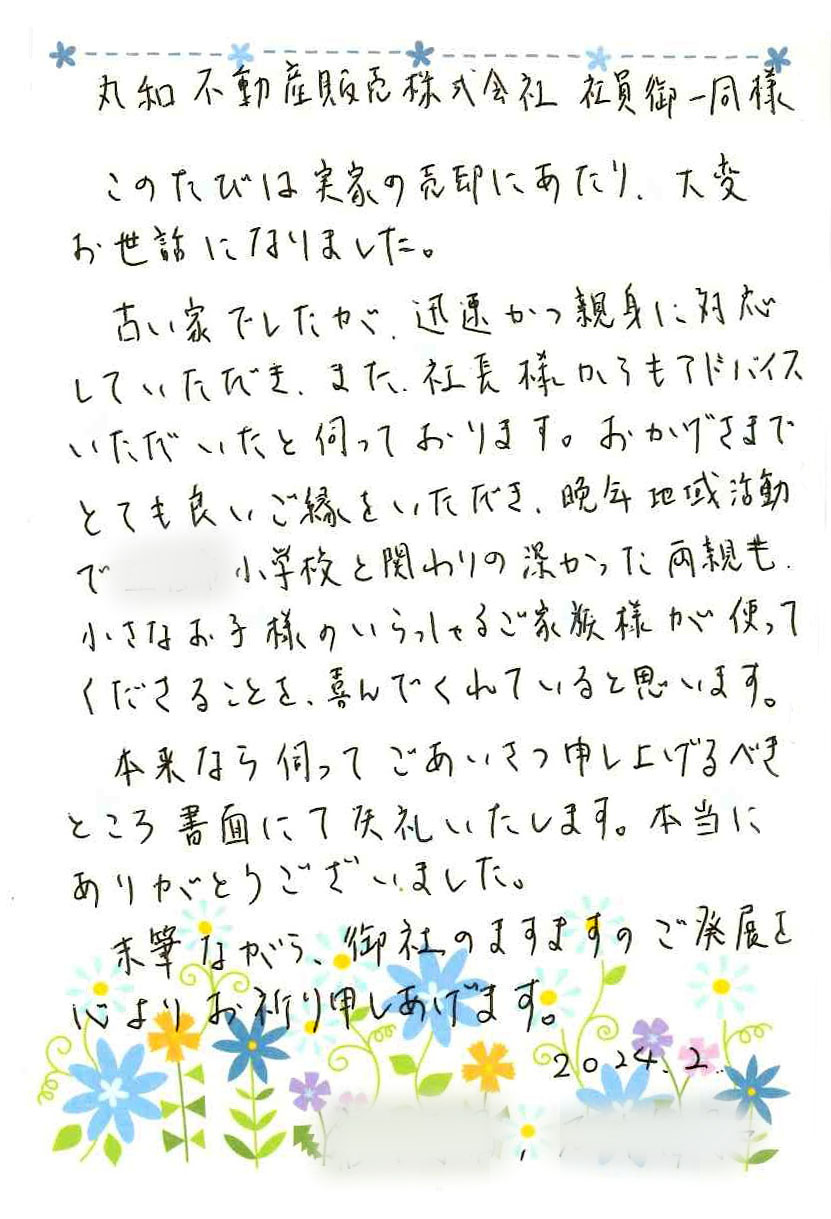 丸和不動産販売株式会社 社員御一同様
このたびは実家の売却にあたり、大変
お世話になりました。
古い家でしたが、迅速かつ親身に対応
していただき、また、社長様からもアドバイス
いただいたと伺っております。おかげさまで
とても良いご縁をいただき、晩年地域活動
で 小学校と関わりの深かった両親も、
小さなお子様のいらっしゃるご家族様が使って
くださることを、喜んでくれていると思います。
本来なら伺ってごあいさつ申し上げるべき
ところ書面にて失礼いたします。本当に
ありがとうございました。
末筆ながら、御社のますますのご発展を
心よりお祈り申しあげます。
2024.2.